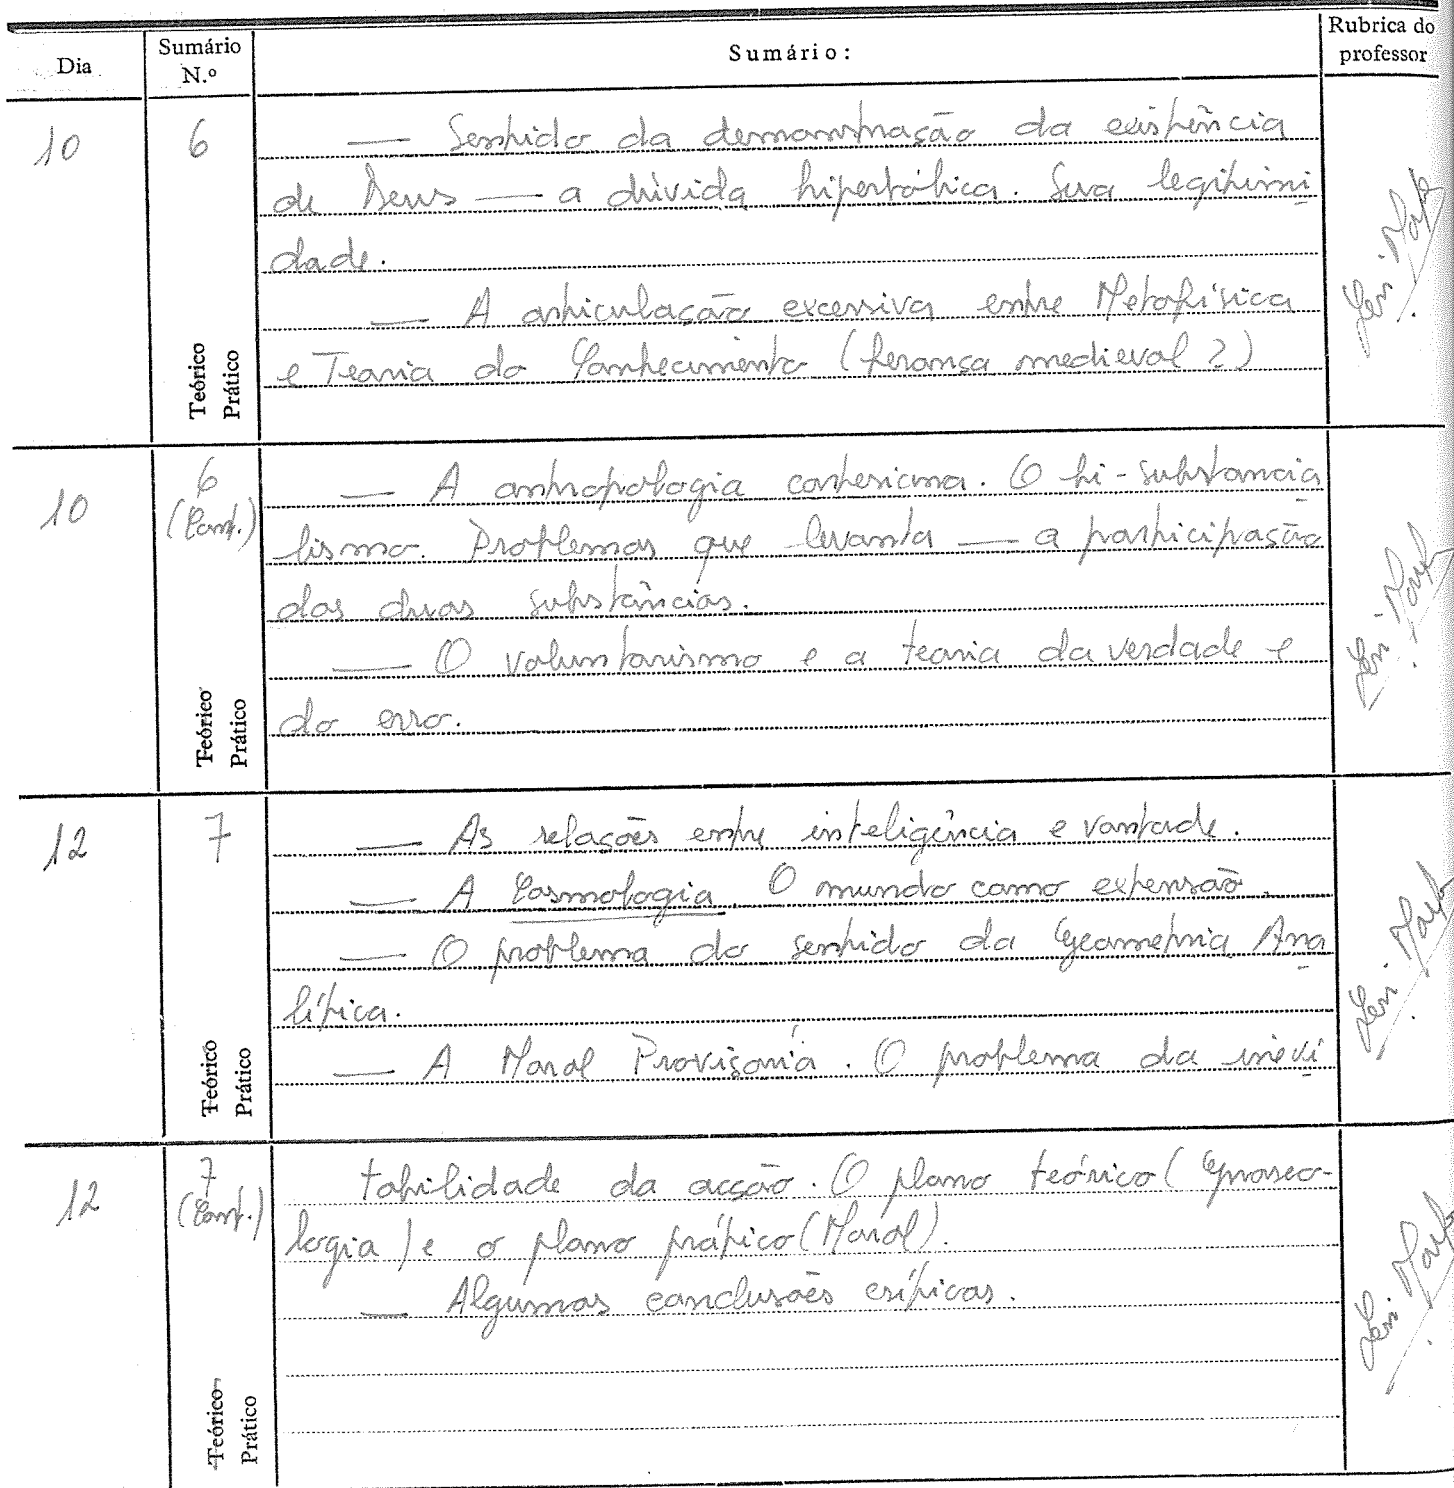 Dia
Sumário N.º
Sumário:
Rubrica do professor
10
6
Teórico
Prático
— Sentido da demonstração da existência
de Deus — a dúvida hiperbólica. Sua legitimi
dade.
— A articulação excessiva entre Metafísica
e Teoria do Conhecimento (herança medieval?)
10
6
(Cont.)
Teórico
Prático
— A antropologia cartesiana. O bi-substancia
lismo. Problemas que levanta — a participação
das duas substâncias.
— O voluntarismo e a teoria da verdade e
do erro.
12
7
Teórico
Prático
— As relações entre inteligência e vontade.
— A Cosmologia. O mundo como extensão.
— O problema do sentido da Geometria Ana
lítica.
— A Moral Provisória. O problema da inevi
12
7
(Cont.)
Teórico
Prático
tabilidade da acção. O plano teórico (Gnoseo-
logia) e o plano prático (Moral).
— Algumas conclusões críticas.